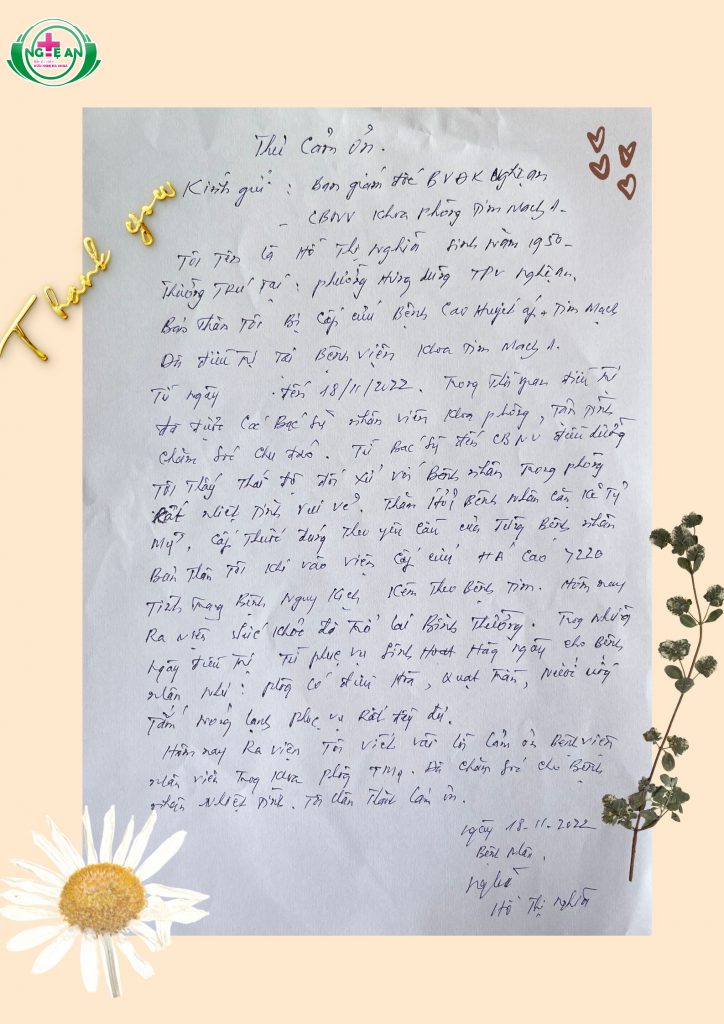 NGHỆ AN
BỆNH VIỆN
HỮU NGHỊ ĐA KHOA
Thank you
Thư Cảm ơn.
Kính gửi: Ban giám đốc BVĐK Nghệ an
- CBNV Khoa phòng Tim Mạch A-
Tôi Tên là Hồ Thị Nghĩa Sinh năm 1950-
Thường Trú Tại: phường Hưng dũng TPV Nghệ An.
Bản Thân Tôi Bị Cấp cứu Bệnh Cao Huyết áp + Tim Mạch
Đã điều Trị Tại Bệnh viện Khoa Tim Mạch A.
Từ ngày . đến 18/11/2022. Trong Thời gian điều Trị
đã được Các Bác Sỹ nhân viên Khoa phòng, Tận Tình
Chăm Sóc Chu Đáo. Từ Bác Sỹ đến CBNV điều dưỡng
Tôi Thấy Thái độ đối xử với Bệnh nhân Trong phòng
Rất nhiệt Tình vui vẻ. Thăm Hỏi Bệnh nhân Cặn Kẽ Tỷ
Mỷ, Cấp Thuốc đúng Theo yêu Cầu của Từng Bệnh nhân
Bản Thân Tôi Khi vào viện Cấp cứu HA Cao 220
Tình Trạng Bệnh Nguy Kịch Kèm Theo Bệnh Tim. Hôm nay
Ra viện Sức Khỏe đã Trở lại Bình Thường. Trong Những
Ngày điều Trị Từ phục vụ Sinh Hoạt Hàng ngày cho Bệnh
nhân như: phòng Có điều Hòa, Quạt Trần, Nước uống
Tắm nóng lạnh phục vụ Rất đầy đủ.
Hôm nay Ra viện Tôi viết vài lời Cảm ơn Bệnh viện
nhân viên Trong Khoa phòng TMA. Đã Chăm Sóc cho Bệnh
nhân Nhiệt Tình. Tôi Chân Thành Cảm ơn.
ngày 18-11-2022
Bệnh Nhân.
Nghĩa
Hồ Thị Nghĩa